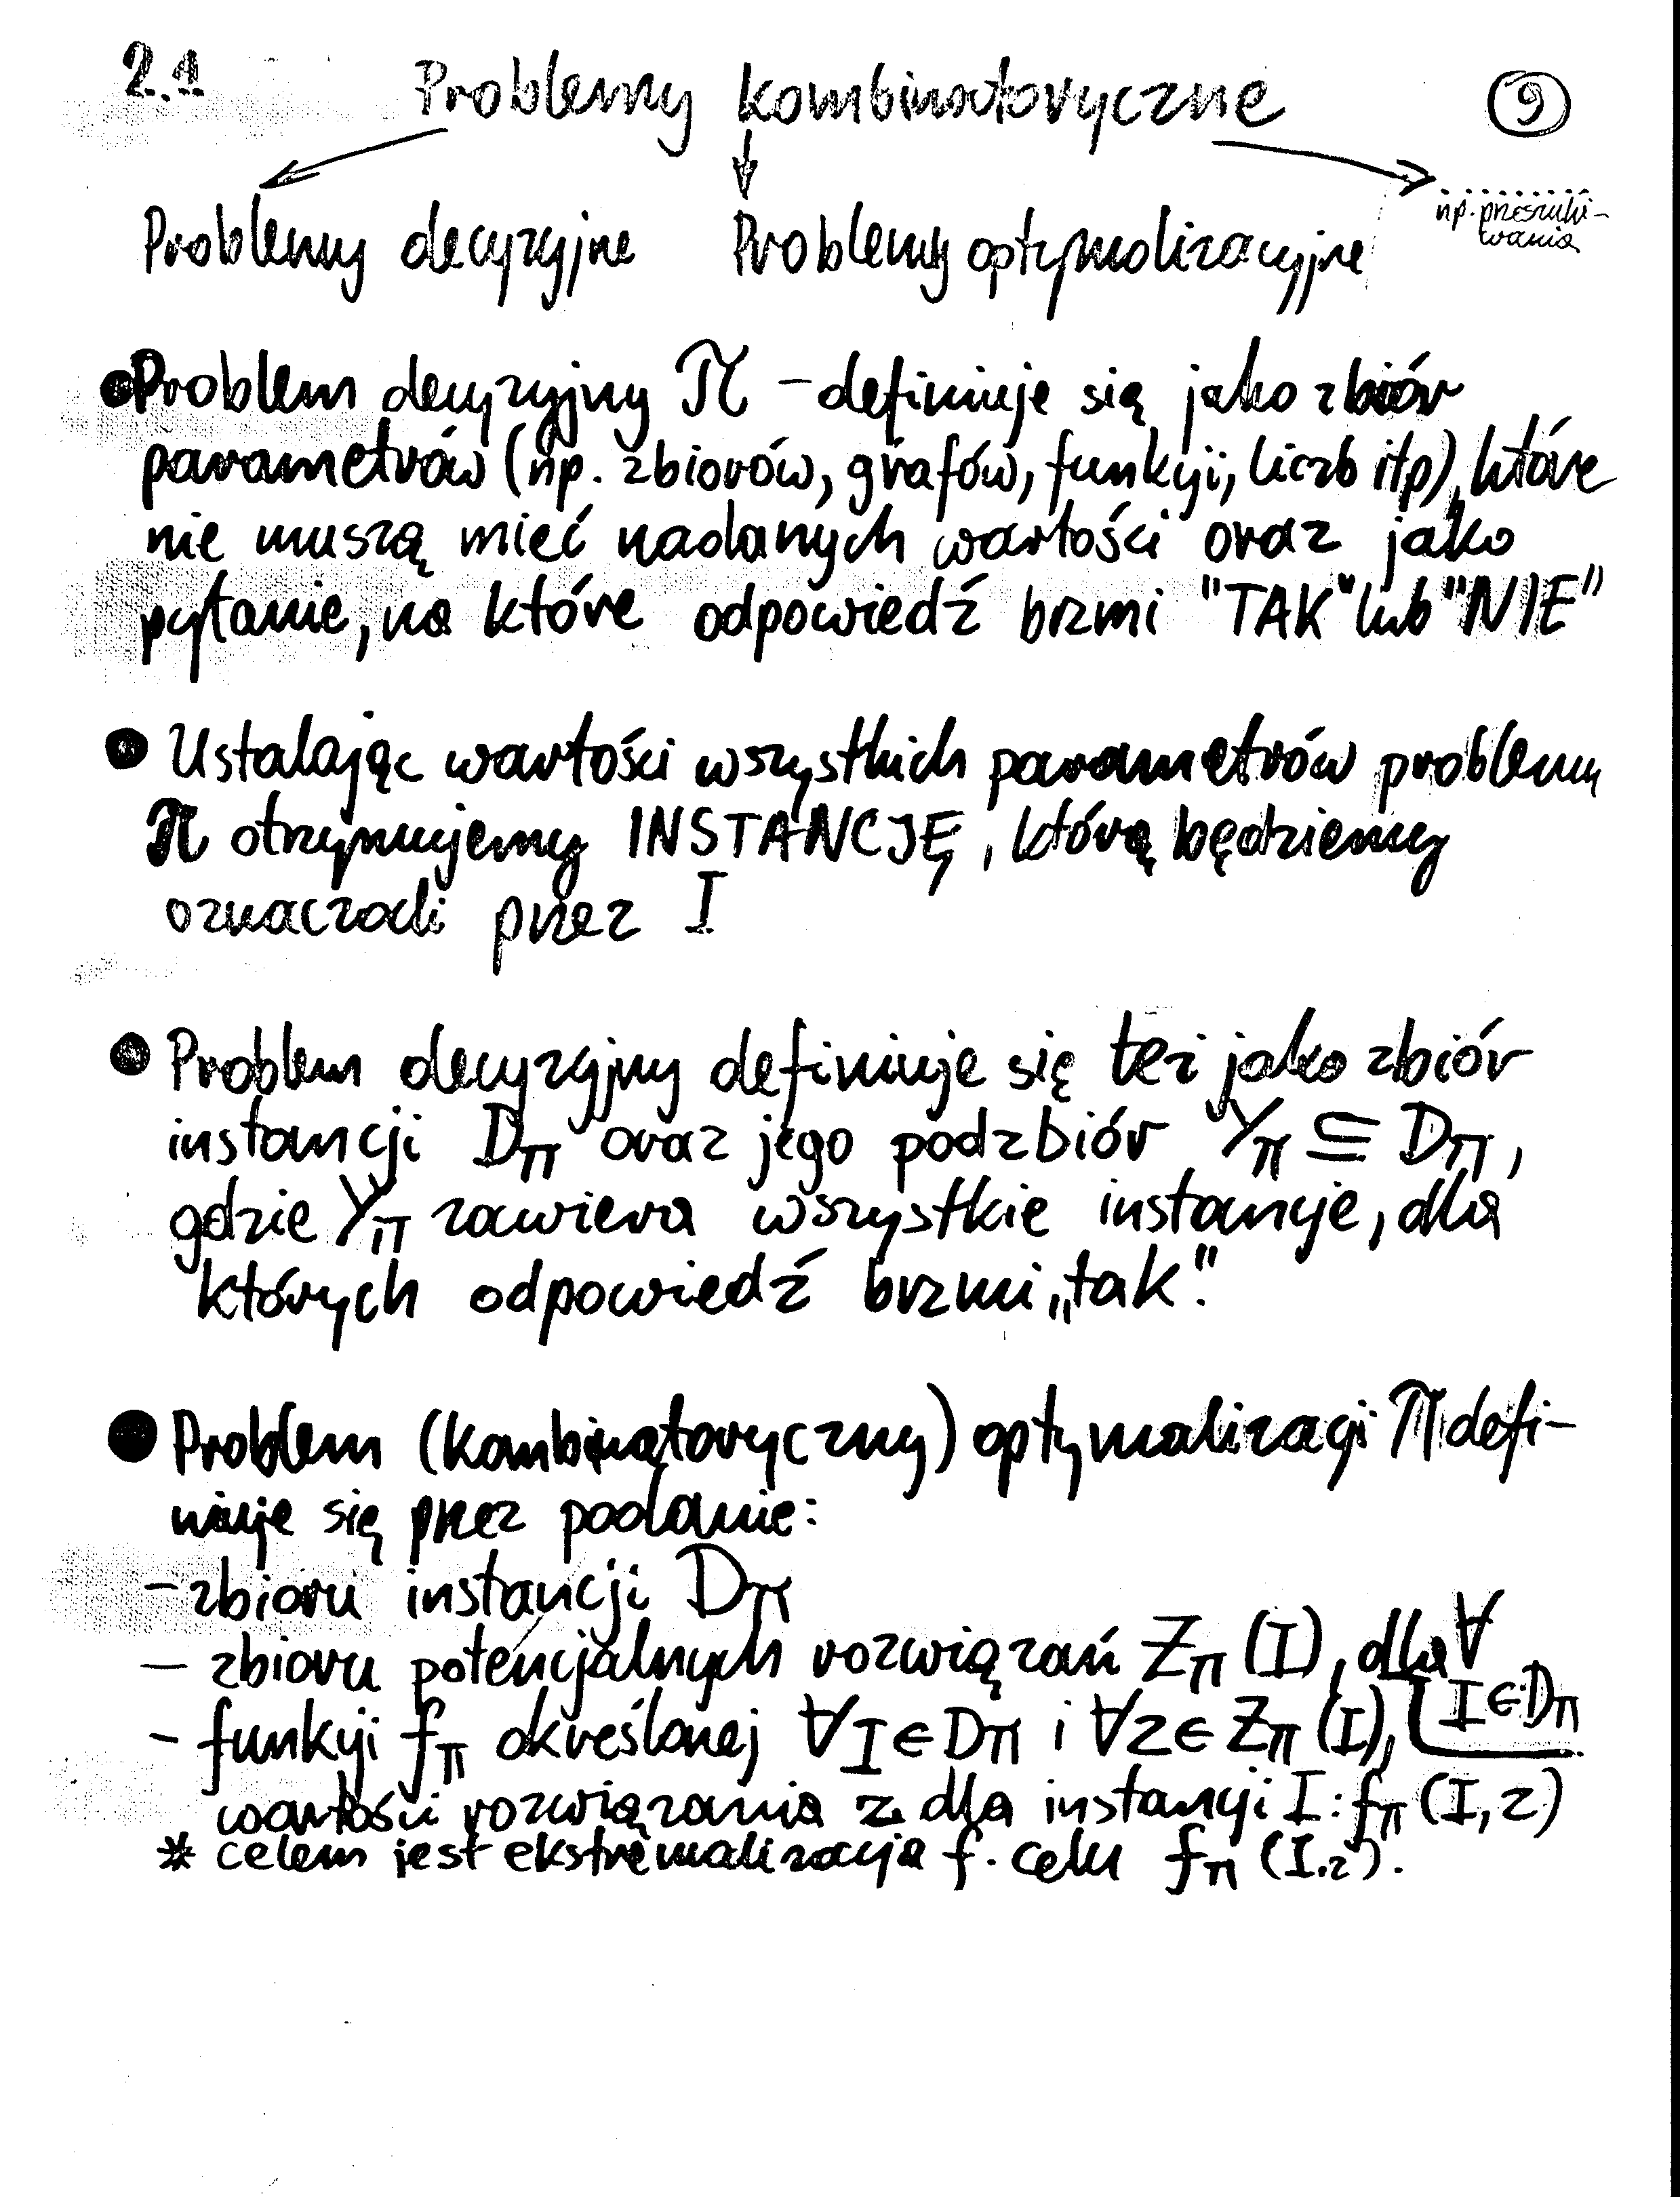 2.1 Problemy kombinatoryczne 9
Problemy decyzyjne Problemy optymalizacyjne np. przeszuki-
wania
● Problem decyzyjny π – definiuje się jako zbiór
parametrów (np. zbiorów, grafów, funkcji, liczb itp), które
nie muszą mieć nadanych wartości oraz jako
pytanie, na które odpowiedź brzmi "TAK" lub "NIE"
● Ustalając wartości wszystkich parametrów problemu
π otrzymujemy INSTANCJĘ, którą będziemy
oznaczali przez I
● Problem decyzyjny definiuje się też jako zbiór
instancji Dπ oraz jego podzbiór Yπ ⊆ Dπ,
gdzie Yπ zawiera wszystkie instancje, dla
których odpowiedź brzmi „tak".
● Problem (kombinatoryczny) optymalizacji π defi-
niuje się przez podanie:
– zbioru instancji Dπ
– zbioru potencjalnych rozwiązań Zπ (I), dla ∀
I ∈ Dπ
– funkcji fπ określonej ∀I ∈ Dπ i ∀z ∈ Zπ (I),
wartości rozwiązania z dla instancji I: fπ (I, z)
* celem jest ekstremalizacja f. celu fπ (I,z).